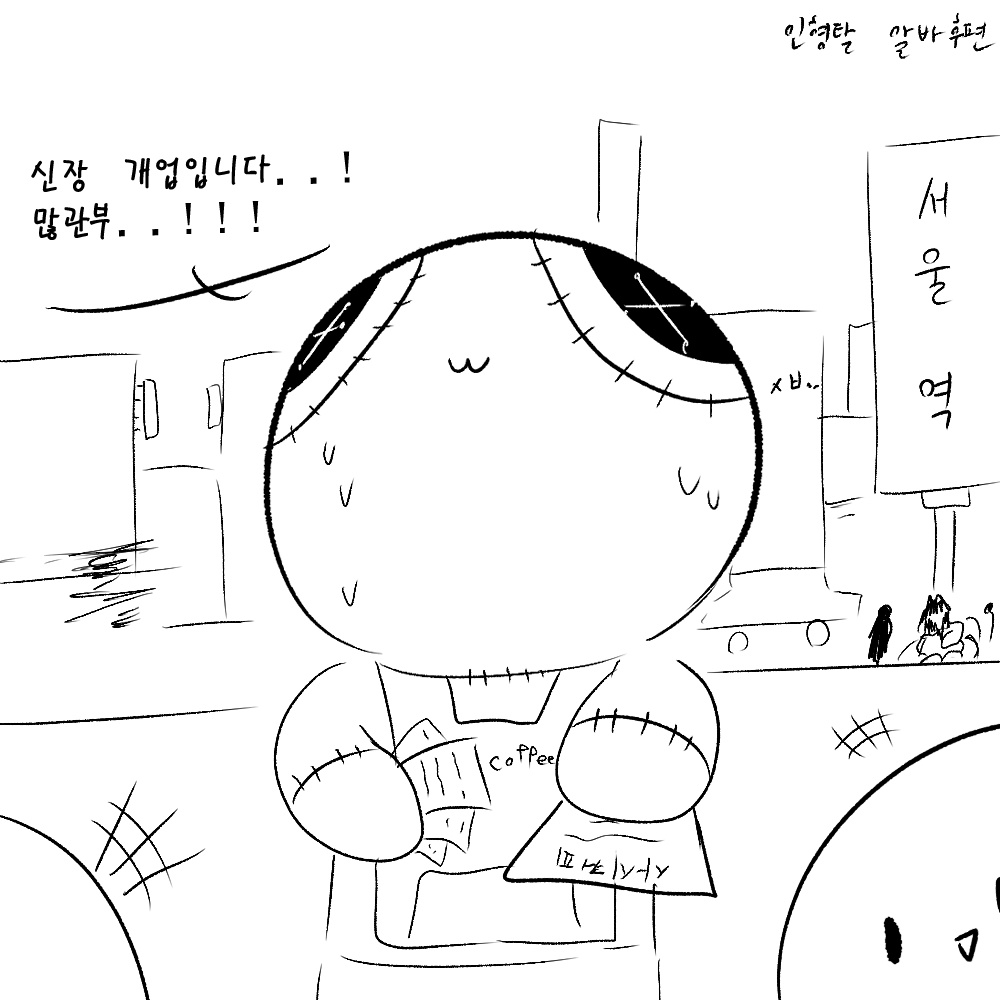 인형탈 알바 후편
신장 개업입니다. . !
많관부. . ! ! !
ㅅㅂ..
서울역
coffee